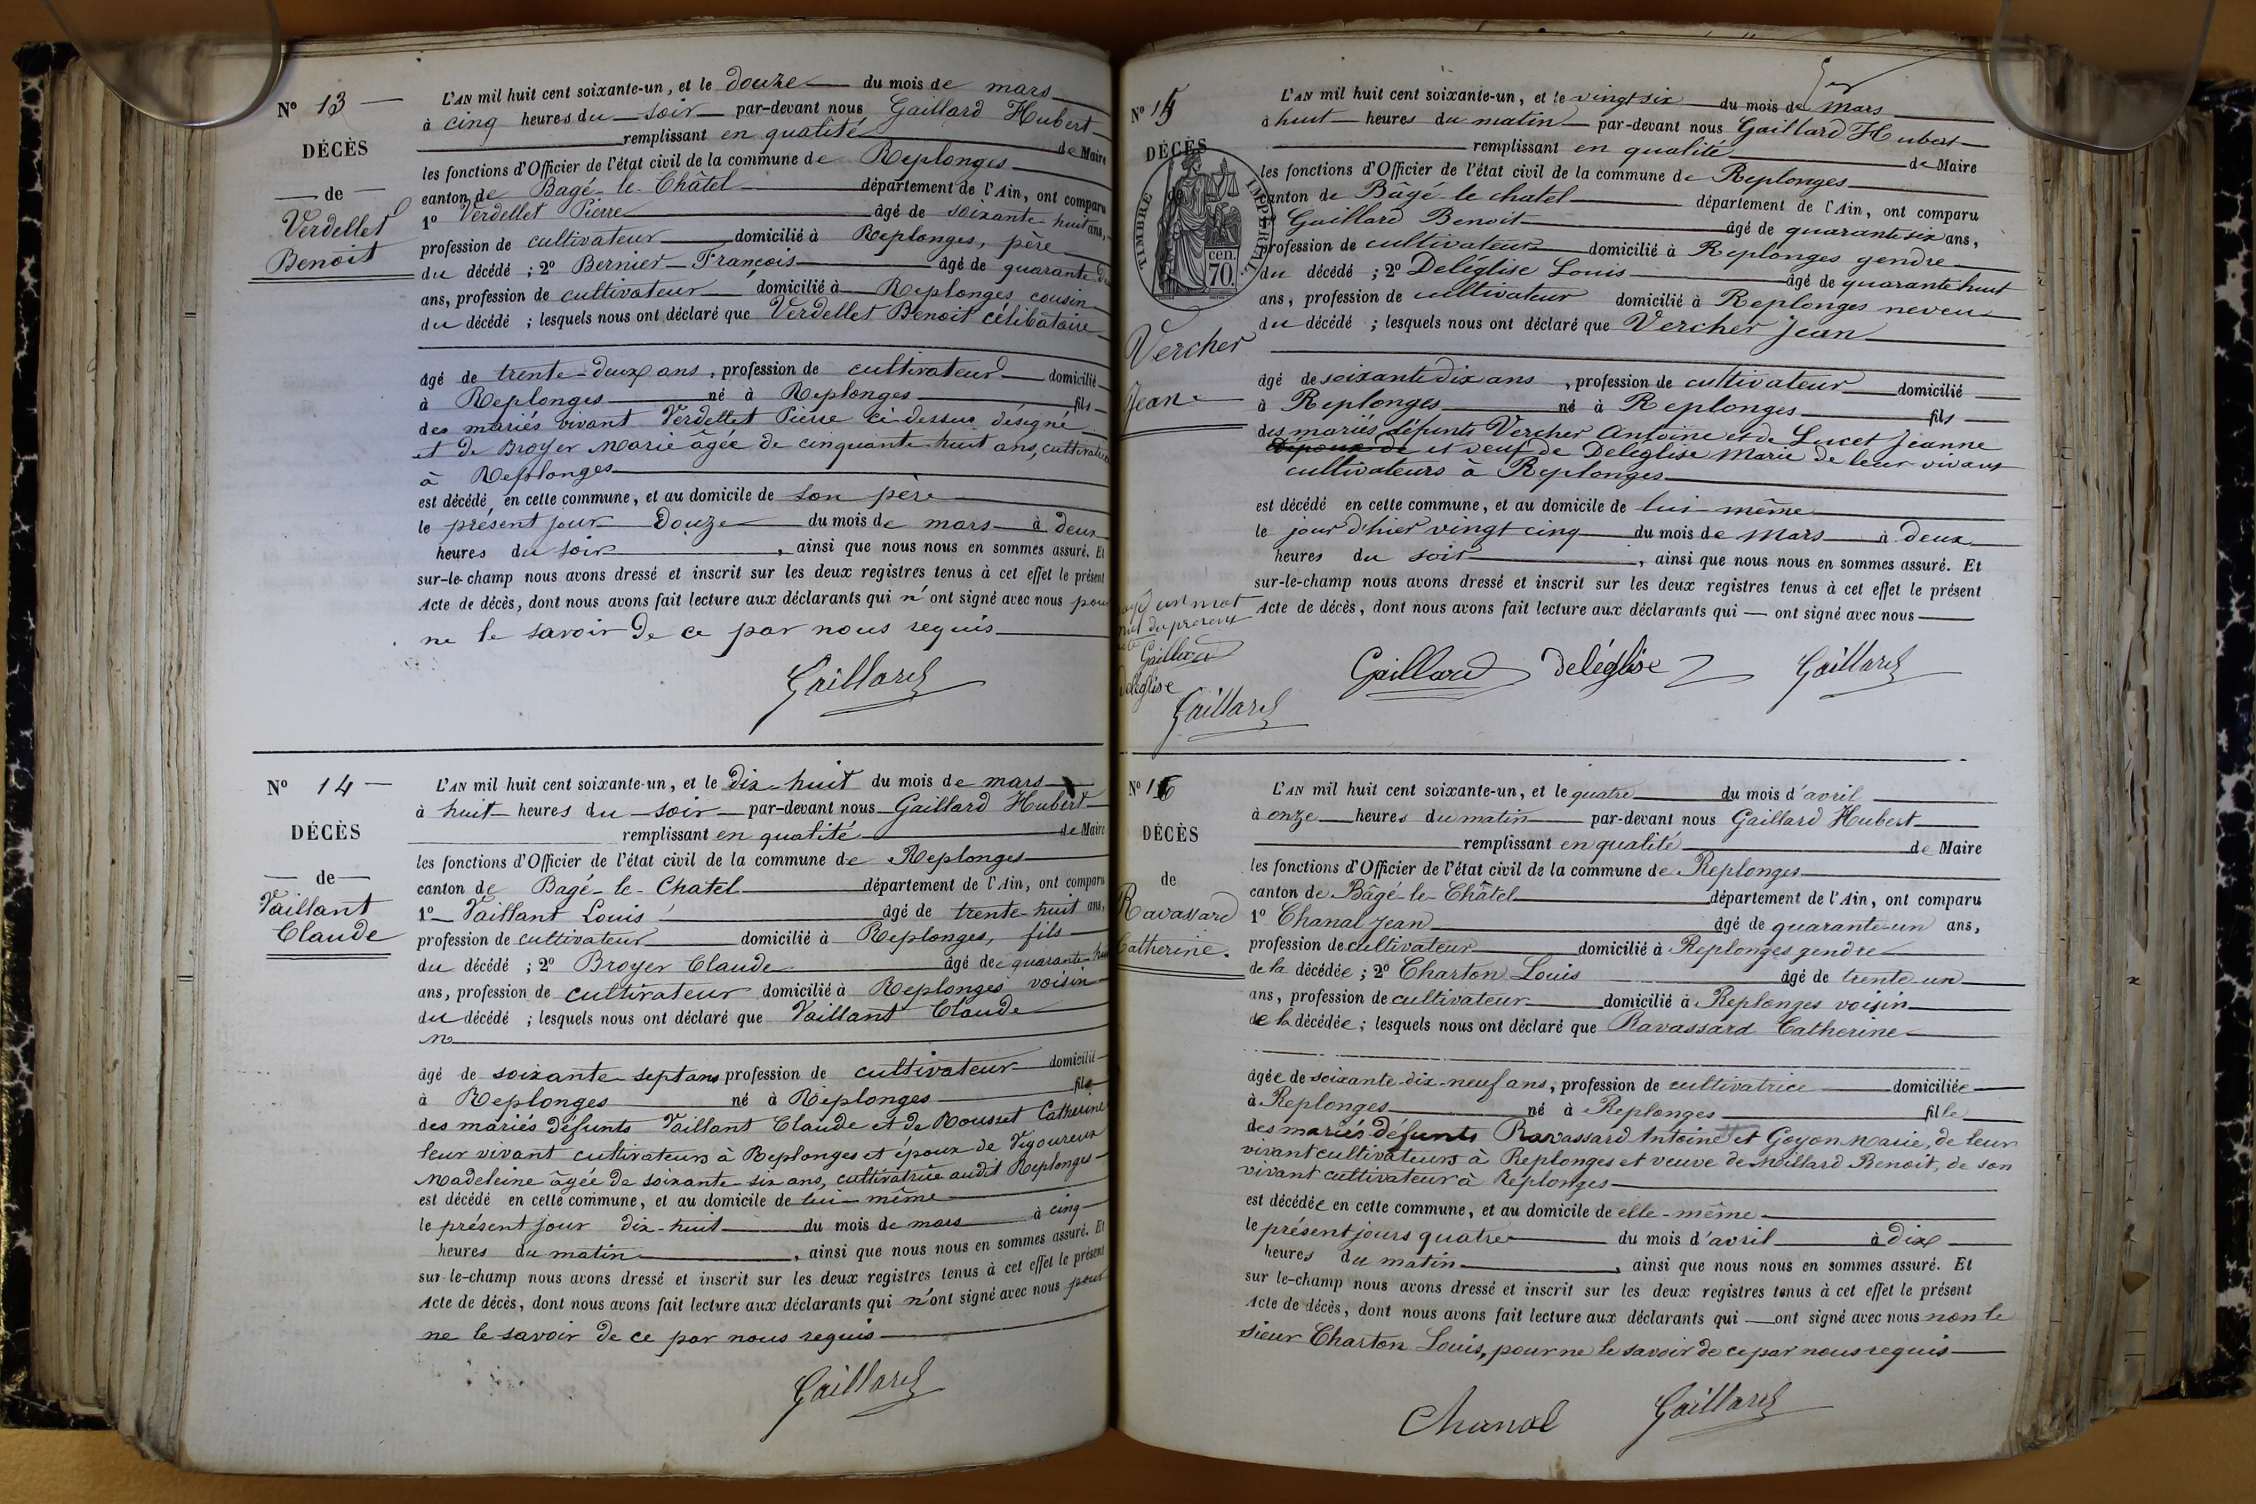 N° 13
DÉCÈS
de
Verdellet
Benoit
L'AN mil huit cent soixante-un, et le douze du mois de mars
à cinq heures du soir par-devant nous Gaillard Hubert
remplissant en qualité de Maire
les fonctions d'Officier de l'état civil de la commune de Replonges
canton de Bagé-le-Châtel département de l'Ain, ont comparu
1° Verdellet Pierre âgé de soixante-huit ans,
profession de cultivateur domicilié à Replonges, père
du décédé ; 2° Bernier François âgé de quarante
ans, profession de cultivateur domicilié à Replonges cousin
du décédé ; lesquels nous ont déclaré que Verdellet Benoit célibataire
âgé de trente-deux ans, profession de cultivateur domicilié
à Replonges né à Replonges fils
des mariés vivant Verdellet Pierre ci-dessus désigné
et de Broyer Marie âgée de cinquante-huit ans, cultivatrice
à Replonges
est décédé en cette commune, et au domicile de son père
le présent jour douze du mois de mars à deux
heures du soir, ainsi que nous nous en sommes assuré. Et
sur-le-champ nous avons dressé et inscrit sur les deux registres tenus à cet effet le présent
Acte de décès, dont nous avons fait lecture aux déclarants qui n'ont signé avec nous pour
ne le savoir de ce par nous requis
Gaillard
N° 14
DÉCÈS
de
Vaillant
Claude
L'AN mil huit cent soixante-un, et le dix-huit du mois de mars
à huit heures du soir par-devant nous Gaillard Hubert
remplissant en qualité de Maire
les fonctions d'Officier de l'état civil de la commune de Replonges
canton de Bagé-le-Chatel département de l'Ain, ont comparu
1° Vaillant Louis âgé de trente-huit ans,
profession de cultivateur domicilié à Replonges, fils
du décédé ; 2° Broyer Claude âgé de quarante-
ans, profession de cultivateur domicilié à Replonges voisin
du décédé ; lesquels nous ont déclaré que Vaillant Claude
âgé de soixante-sept ans profession de cultivateur domicilié
à Replonges né à Replonges fils
des mariés défunts Vaillant Claude et de Rousset Catherine
leur vivant cultivateurs à Replonges et époux de Vigoureux
Madeleine âgée de soixante-six ans, cultivatrice audit Replonges
est décédé en cette commune, et au domicile de lui-même
le présent jour dix-huit du mois de mars à cinq
heures du matin, ainsi que nous nous en sommes assuré. Et
sur-le-champ nous avons dressé et inscrit sur les deux registres tenus à cet effet le présent
Acte de décès, dont nous avons fait lecture aux déclarants qui n'ont signé avec nous pour
ne le savoir de ce par nous requis
Gaillard
N° 15
DÉCÈS
de
TIMBRE IMPÉRIAL
cen.
70.
Vercher
Jean
L'AN mil huit cent soixante-un, et le vingt six du mois de mars
à huit heures du matin par-devant nous Gaillard Hubert
remplissant en qualité de Maire
les fonctions d'Officier de l'état civil de la commune de Replonges
canton de Bâgé-le-chatel département de l'Ain, ont comparu
Gaillard Benoit âgé de quarante six ans,
profession de cultivateur domicilié à Replonges gendre
du décédé ; 2° Deléglise Louis âgé de quarante huit
ans, profession de cultivateur domicilié à Replonges neveu
du décédé ; lesquels nous ont déclaré que Vercher Jean
âgé de soixante dix ans, profession de cultivateur domicilié
à Replonges né à Replonges fils
des mariés défunts Vercher Antoine et de Lucet Jeanne
époux de et veuf de Deléglise Marie de leur vivant
cultivateurs à Replonges
est décédé en cette commune, et au domicile de lui-même
le jour d'hier vingt cinq du mois de mars à deux
heures du soir, ainsi que nous nous en sommes assuré. Et
sur-le-champ nous avons dressé et inscrit sur les deux registres tenus à cet effet le présent
Acte de décès, dont nous avons fait lecture aux déclarants qui ont signé avec nous
un mot
du présent
Gaillard
deléglise
Gaillard
Gaillard deléglise Gaillard
N° 16
DÉCÈS
de
Ravassard
Catherine.
L'AN mil huit cent soixante-un, et le quatre du mois d'avril
à onze heures du matin par-devant nous Gaillard Hubert
remplissant en qualité de Maire
les fonctions d'Officier de l'état civil de la commune de Replonges
canton de Bâgé-le-Châtel département de l'Ain, ont comparu
1° Chanal Jean âgé de quarante-un ans,
profession de cultivateur domicilié à Replonges gendre
de la décédée ; 2° Charton Louis âgé de trente-un
ans, profession de cultivateur domicilié à Replonges voisin
de la décédée ; lesquels nous ont déclaré que Ravassard Catherine
âgée de soixante-dix-neuf ans, profession de cultivatrice domiciliée
à Replonges né à Replonges fille
des mariés défunts Ravassard Antoine et Goyon Marie, de leur
vivant cultivateurs à Replonges et veuve de Millard Benoit, de son
vivant cultivateur à Replonges
est décédée en cette commune, et au domicile de elle-même
le présent jours quatre du mois d'avril à dix
heures du matin, ainsi que nous nous en sommes assuré. Et
sur le-champ nous avons dressé et inscrit sur les deux registres tenus à cet effet le présent
Acte de décès, dont nous avons fait lecture aux déclarants qui ont signé avec nous non le
sieur Charton Louis, pour ne le savoir de ce par nous requis
Chanal Gaillard